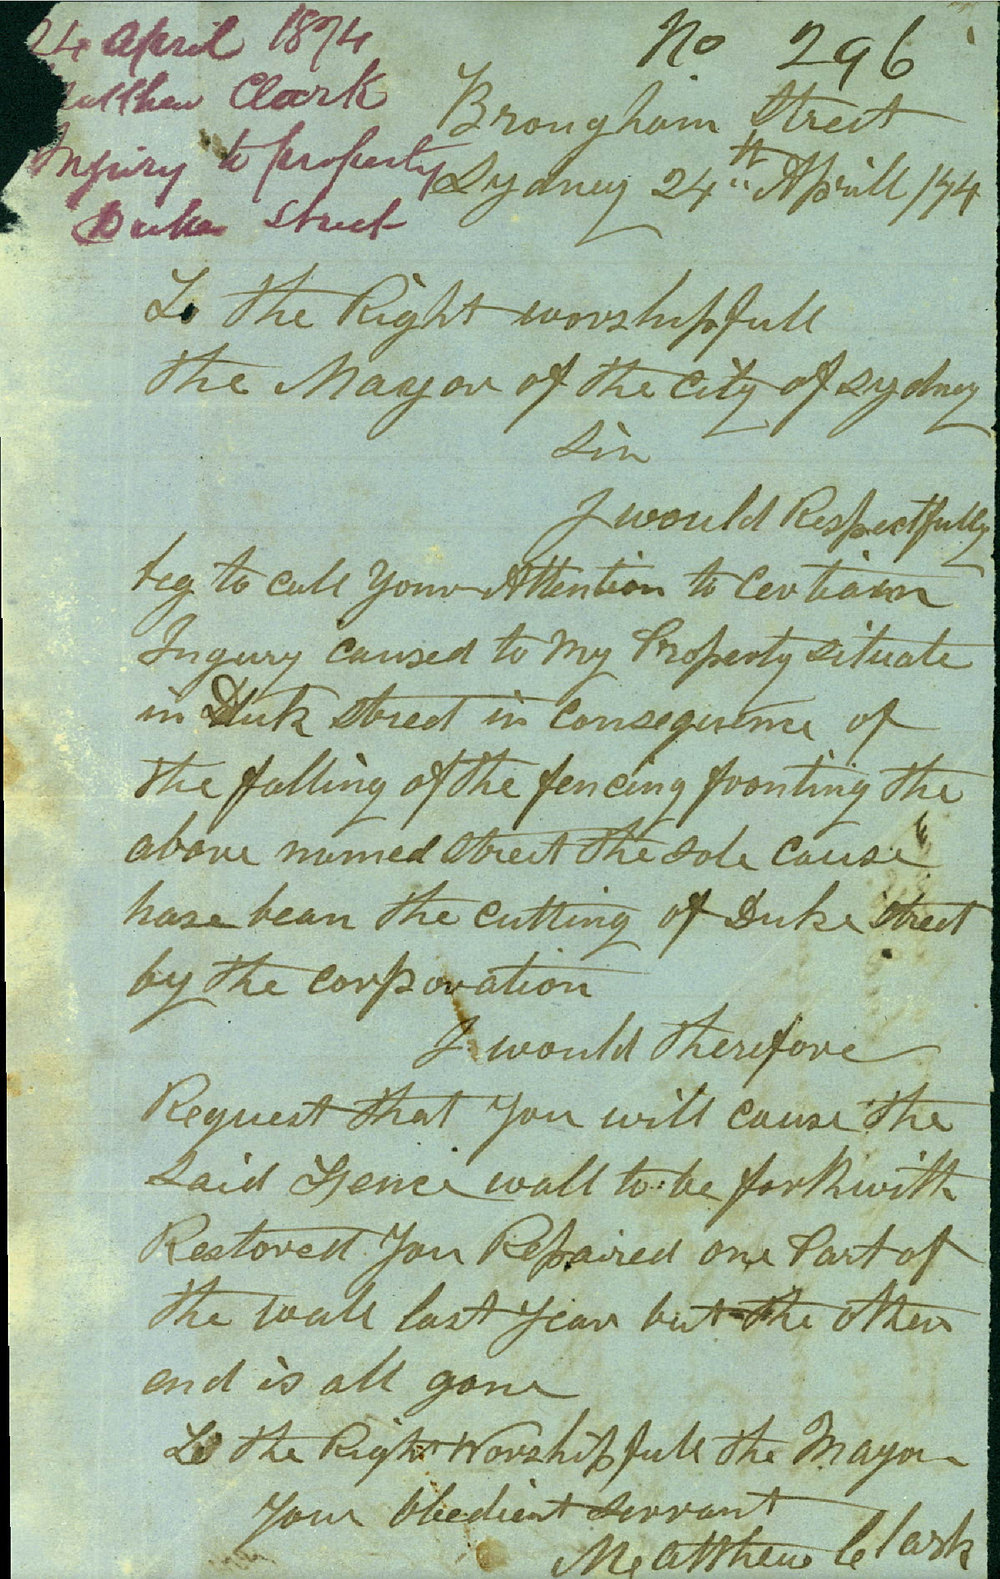 24 April 1874
Matthew Clark
Injury to property
Duke Street
No 296
Brougham Street
Sydney 24th Aprill /74
To the Right worshipfull
the Mayor of the City of Sydney
Sir
I would Respectfully
beg to call your Attention to Certian
Ingury caused to My Property situate
in Duk Street in Consequence of
the falling of the fencing fronting the
above named Street the sole cause
hase bean the cutting of Duke Street
by the corporation
I would therefore
Request that you will cause the
Said Fence wall to be forthwith
Restored You Repaired one Part of
the wall last year but the other
end is all gone
To the Right Worshipfull the Mayor
Your Obedient Servant
Matthew Clark